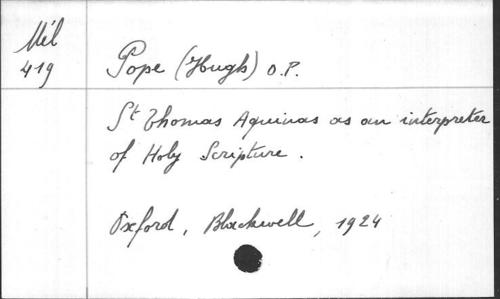 Mél
419
Pope (Hugh) O.P.
St Thomas Aquinas as an interpreter
of Holy Scripture.
Oxford, Blackwell, 1924